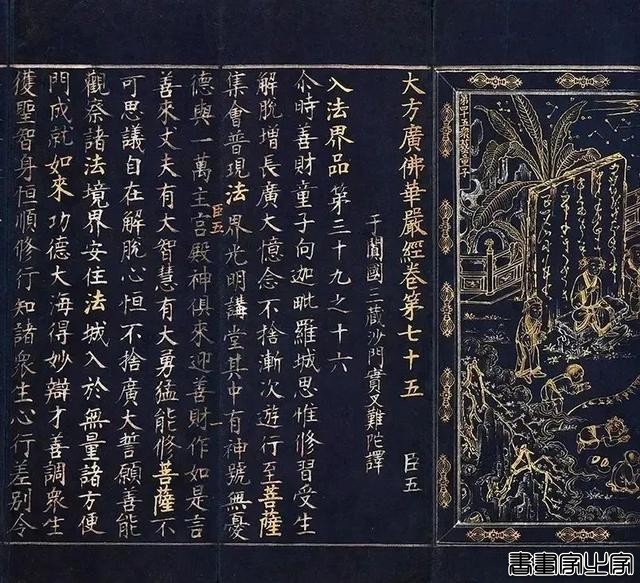 第四十五眾藝童子
大方廣佛華嚴經卷第七十五 臣五
于闐國三藏沙門實叉難陀譯
入法界品第三十九之十六
尒時善財童子向迦毗羅城思惟修習受生
解脫增長廣大憶念不捨漸次遊行至菩薩
集會普現法界光明講堂其中有神號無憂
臣五 一
德與一萬主宮殿神俱來迎善財作如是言
善來丈夫有大智慧有大勇猛能修菩薩不
可思議自在解脫心恒不捨廣大誓願善能
觀察諸法境界安住法城入於無量諸方便
門成就如來功德大海得妙辯才善調衆生
獲聖智身恒順修行知諸衆生心行差別令
書畫家之家